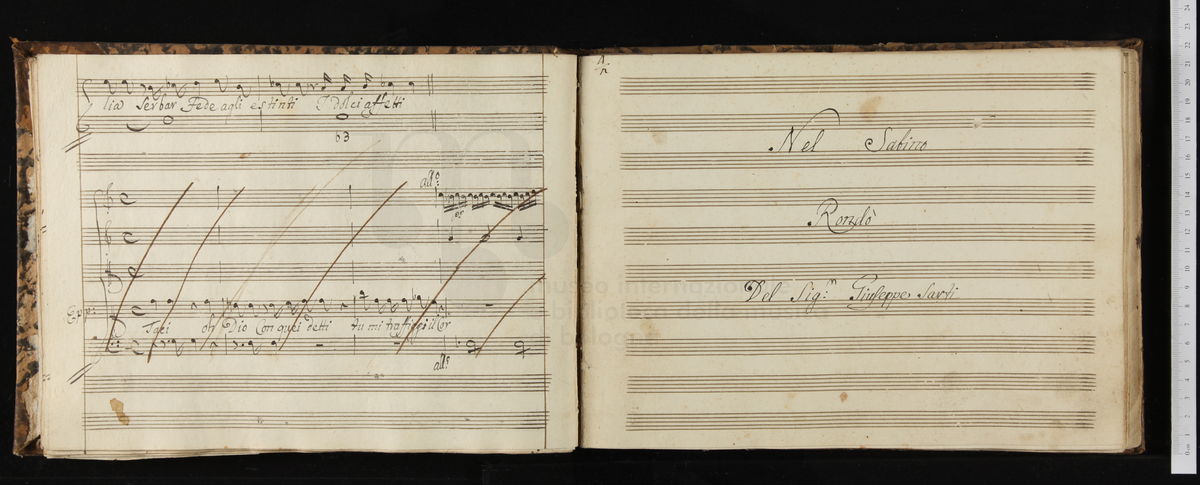 lia Serbar Fede agli estinti I dolci affetti
b3
all.º
Epp:
Taci oh Dio Con quei detti tu mi trafiggi il Cor
all.º
Nel Sabino
Rondò
Del Sig.r Giuseppe Sarti
museo internazionale e
biblioteca della musica
bologna